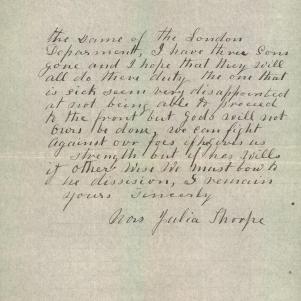 the same of the London
Deparment, I have three Sons
gone and I hope that they will
all do there duty the one that
is sick seem very disappointed
at not being able to proceed
to the front but gods will not
ours be done, we can fight
against our foes if he gives us
strength but if hes wills
it other wise We must bow to
he dissision, I remain
yours Sincerly
Mrs Julia Thorpe